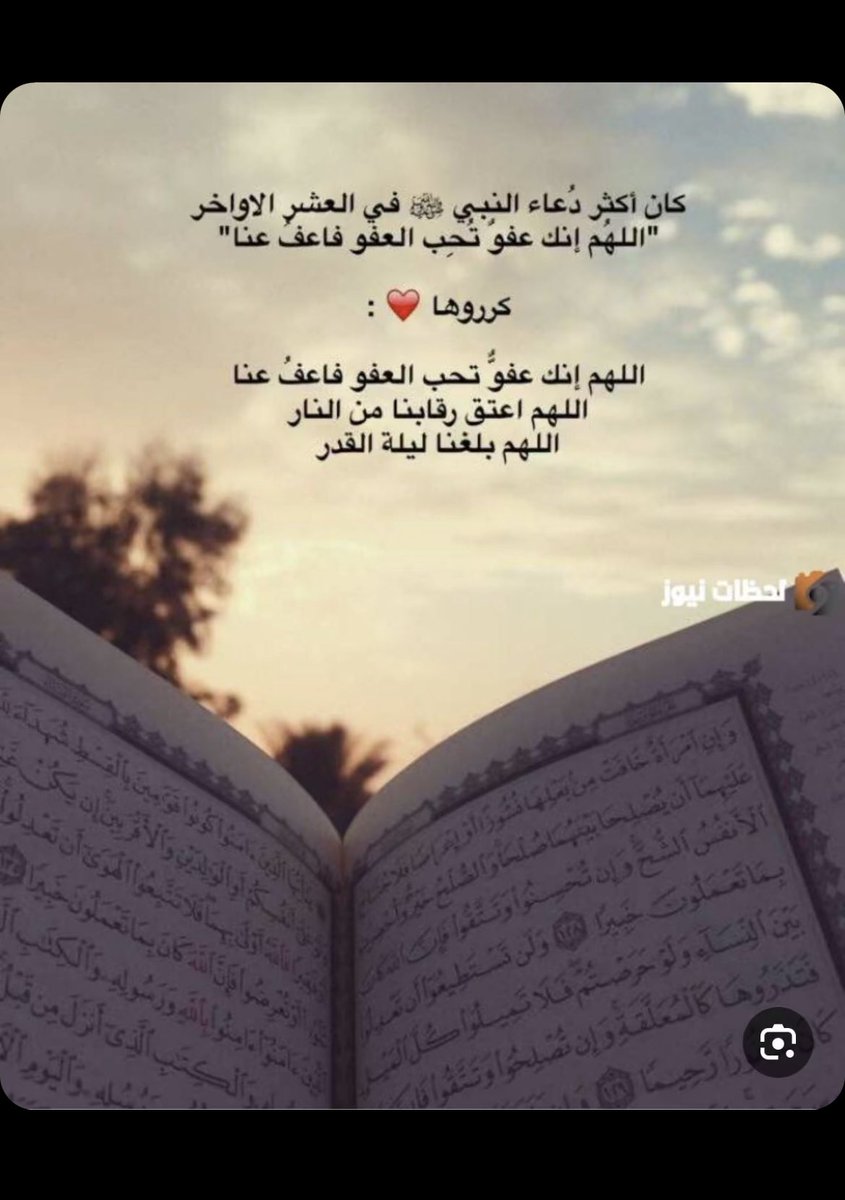 كان أكثر دُعاء النبي ﷺ في العشر الاواخر
"اللهُم إنك عفوٌ تُحِب العفو فاعفُ عنا"
كرروها ❤️ :
اللهم إنك عفوٌّ تحب العفو فاعفُ عنا
اللهم اعتق رقابنا من النار
اللهم بلغنا ليلة القدر
لحظات نيوز
وَإِنِ ٱمْرَأَةٌ خَافَتْ مِنۢ بَعْلِهَا نُشُوزًا أَوْ إِعْرَاضًا فَلَا جُنَاحَ
عَلَيْهِمَآ أَن يُصْلِحَا بَيْنَهُمَا صُلْحًا وَٱلصُّلْحُ خَيْرٌ وَأُحْضِرَتِ
ٱلْأَنفُسُ ٱلشُّحَّ وَإِن تُحْسِنُوا۟ وَتَتَّقُوا۟ فَإِنَّ ٱللَّهَ كَانَ
بِمَا تَعْمَلُونَ خَبِيرًا ١٢٨ وَلَن تَسْتَطِيعُوٓا۟ أَن تَعْدِلُوا۟
بَيْنَ ٱلنِّسَآءِ وَلَوْ حَرَصْتُمْ فَلَا تَمِيلُوا۟ كُلَّ ٱلْمَيْلِ
فَتَذَرُوهَا كَٱلْمُعَلَّقَةِ وَإِن تُصْلِحُوا۟ وَتَتَّقُوا۟ فَإِنَّ
رَّحِيمًا ١٢٩ وَإِن
ٱلَّذِينَ ءَامَنُوا۟ كُونُوا۟ قَوَّٰمِينَ بِٱلْقِسْطِ شُهَدَآءَ
أَوِ ٱلْوَٰلِدَيْنِ وَٱلْأَقْرَبِينَ إِن يَكُنْ
فَٱللَّهُ أَوْلَىٰ بِهِمَا فَلَا تَتَّبِعُوا۟ ٱلْهَوَىٰٓ أَن تَعْدِلُوا۟
تُعْرِضُوا۟ فَإِنَّ ٱللَّهَ كَانَ بِمَا تَعْمَلُونَ خَبِيرًا
ءَامَنُوٓا۟ ءَامِنُوا۟ بِٱللَّهِ وَرَسُولِهِۦ وَٱلْكِتَٰبِ
وَٱلْكِتَٰبِ ٱلَّذِىٓ أَنزَلَ مِن قَبْلُ
وَٱلْيَوْمِ